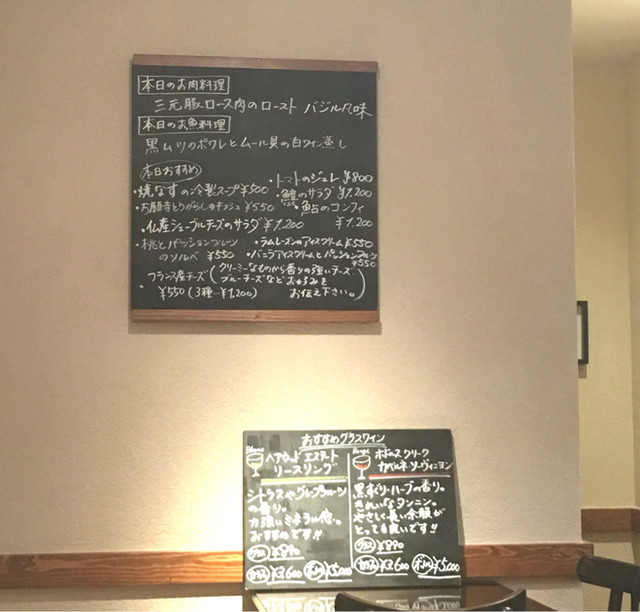 本日のお肉料理
三元豚ロース肉のロースト バジル風味
本日のお魚料理
黒ムツのポワレとムール貝の白ワイン蒸し
本日おすすめ
・焼なすの冷製スープ ¥500
・お願寺とうがらしの ¥550
・仏産シェーブルチーズのサラダ ¥1,200
・桃とパッションフルーツ
のソルベ ¥550
・フランス産チーズ
¥550 (3種…¥1,200)
(クリーミーなものから香りの強いチーズ、
ブルーチーズなど お好みを
お伝え下さい。)
・トマトのジュレ ¥800
・鱧のサラダ ¥1,200
・鮎のコンフィ
¥1,200
・ラムレーズンのアイスクリーム ¥550
・バニラアイスクリームとパッションフルーツ
¥550
おすすめグラスワイン
Blanc
エステート
リースリング
シトラスやグレープフルーツ
の香り。
力強いミネラル感。
おすすめです!!
グラス ¥890
¥3,600 ボトル ¥5,000
Rouge
クリーク
カベルネ・ソーヴィニヨン
黒すぐり・ハーブの香り。
きれいなタンニン。
やさしく長い余韻が
とっても良いです!!
グラス ¥890
¥3,600 ボトル ¥5,000